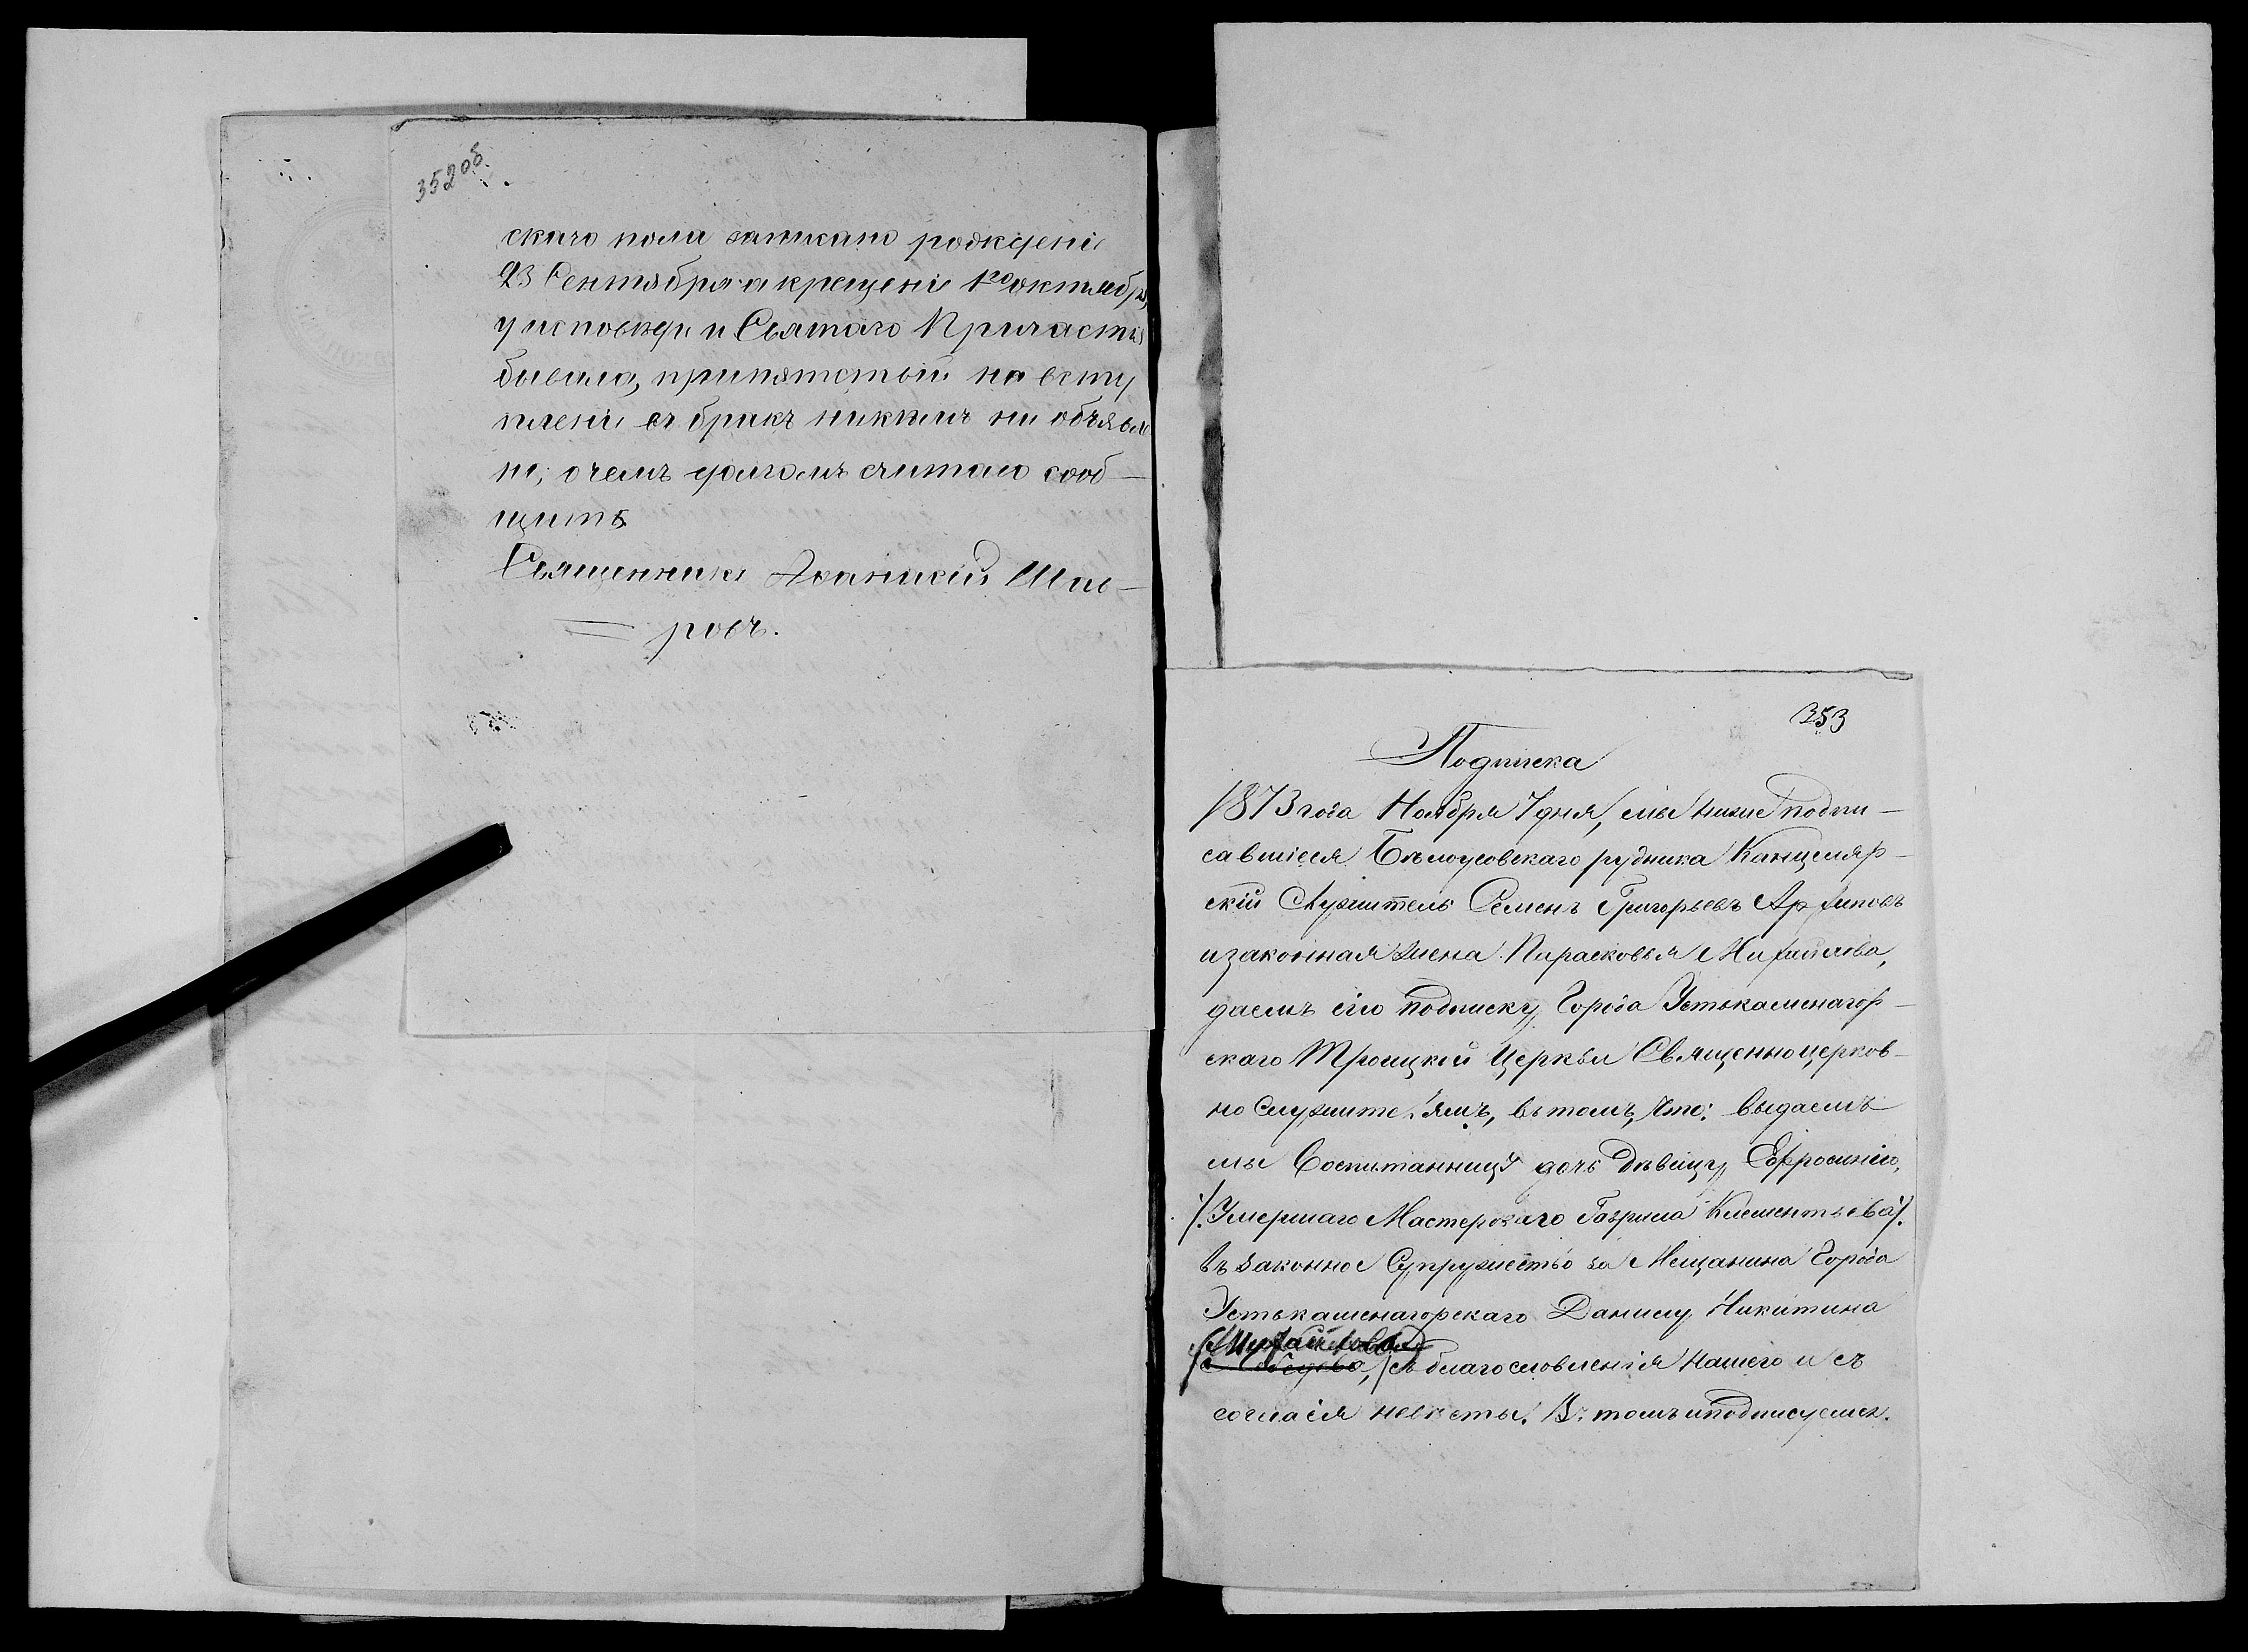 352 об.
скаго пола записано рожденіе
23 Сентября а крещеніе 1го октября,
у исповѣди и Святаго Причастія
бывала, припятствій на всту
пленіе въ бракъ никѣмъ не объявле
но; очемъ долгомъ считаю сооб-
щить
Священникъ Аѳанасій
ровъ.
353
Подписка
1873 года Ноября 7 дня, мы ниже подпи-
савшіеся Бѣлоусовскаго рудника Канцеляр-
скій Служитель Семенъ Григорьевъ Архиповъ
и законная жена Парасковья Михайлова,
даемъ сію подписку Города Устькаменагор-
скаго Троицкой Церкви Священноцерков-
но Служителямъ, въ томъ, что: выдаемъ
мы Воспитанницу дочь дѣвицу Ефросинію,
/.Умершаго Мастероваго Гаврила Клементьева/.
въ законное Супружество за Мещанина Города
Устькаменагорскаго Данилу Никитина
Михайлова
съ благословленія нашего и съ
согласія невѣсты. Въ томъ и подписуемся.